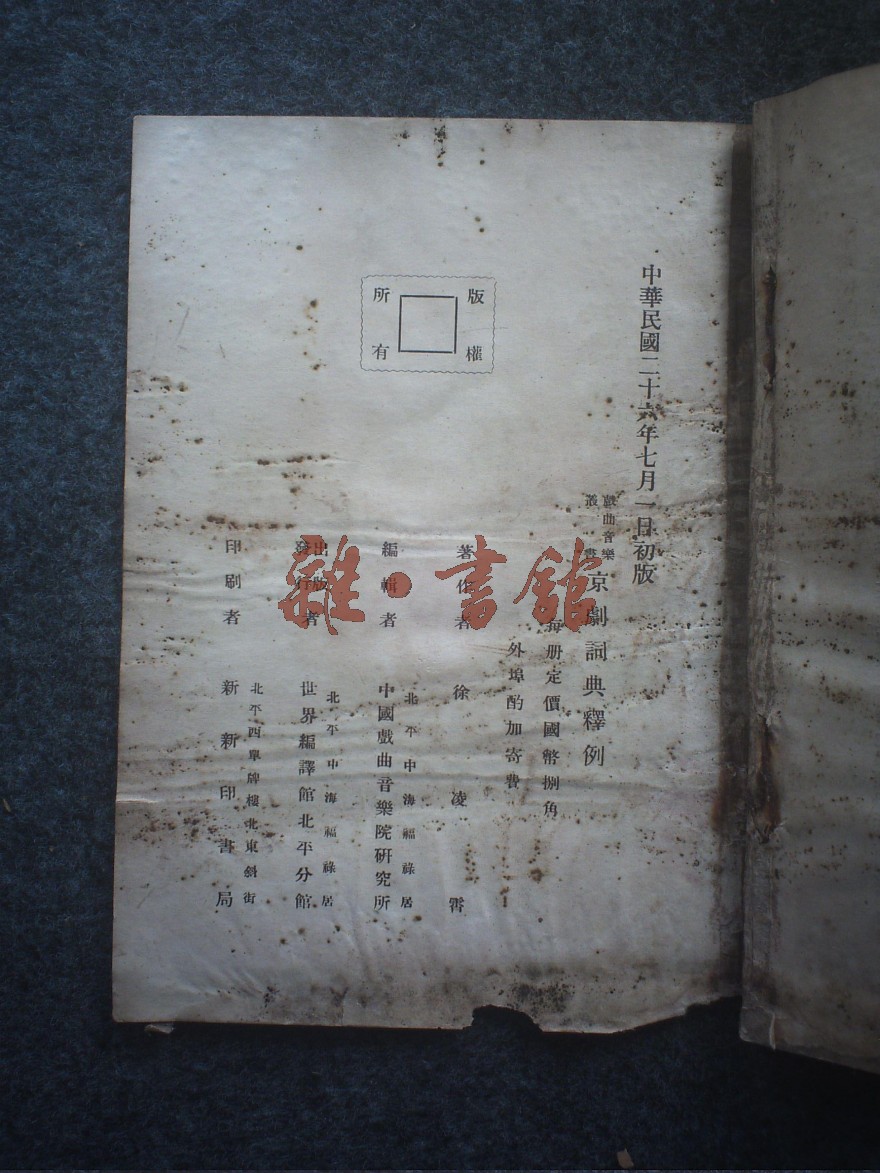 中華民國二十六年七月一日初版
戲曲音樂
叢書
京劇詞典釋例
每册定價國幣捌角
外埠酌加寄費
版權
所有
著作者 徐凌霄
編輯者
北平中海福祿居
中國戲曲音樂院研究所
出版
發行者
北平中海福祿居
世界編譯館北平分館
印刷者
北平西單牌樓北東斜街
新新印書局
雜·書館